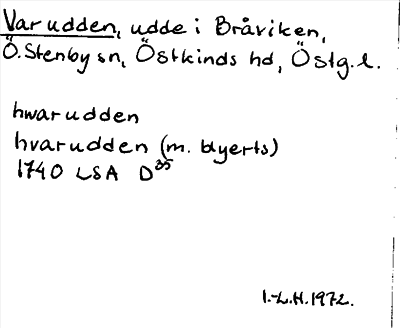 Varudden, udde i Bråviken,
Ö. Stenby sn, Östkinds hd, Östg.l.
hwarudden
hvarudden (m. blyerts)
1740 LSA D35
I.-L.H. 1972.